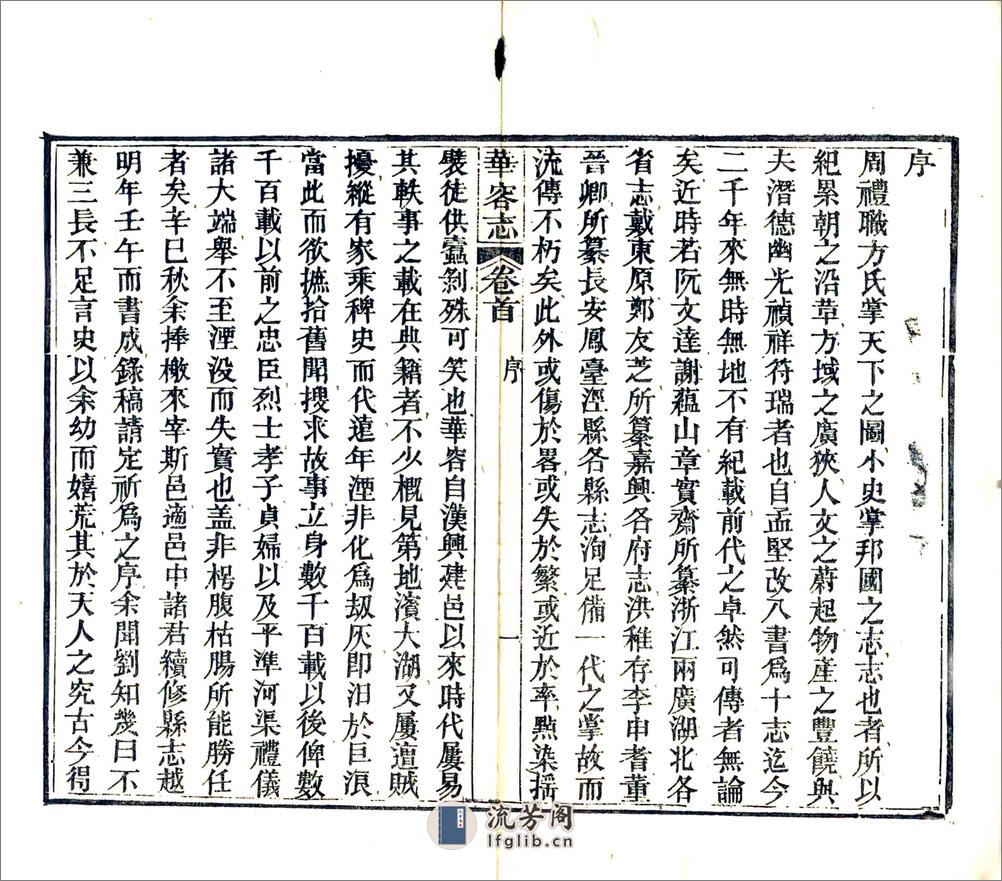 序
周禮職方氏掌天下之圖小史掌邦國之志志也者所以
紀累朝之沿革方域之廣狹人文之蔚起物產之豐饒與
夫潛德幽光禎祥符瑞者也自孟堅改八書爲十志迄今
二千年來無時無地不有紀載前代之卓然可傳者無論
矣近時若阮文達謝蘊山章實齋所纂浙江兩廣湖北各
省志戴東原鄭友芝所纂嘉興各府志洪稚存李申耆董
晉卿所纂長安鳳臺涇縣各縣志洵足備一代之掌故而
流傳不朽矣此外或傷於畧或失於繁或近於率點染揺
華容志
卷首
序
一
襞徒供蠹剜殊可笑也華容自漢興建邑以來時代屢易
其軼事之載在典籍者不少概見第地濱大湖又屢遭賊
擾縱有家乘稗史而代遠年湮非化爲刼灰即汨於巨浪
當此而欲摭拾舊聞搜求故事立身數千百載以後俾數
千百載以前之忠臣烈士孝子貞婦以及平準河渠禮儀
諸大端舉不至湮沒而失實也盖非枵腹枯腸所能勝任
者矣辛巳秋余捧檄來宰斯邑適邑中諸君續修縣志越
明年壬午而書成錄稿請定祈爲之序余聞劉知幾曰不
兼三長不足言史以余幼而嬉荒其於天人之究古今得
流芳阁
lfglib.cn